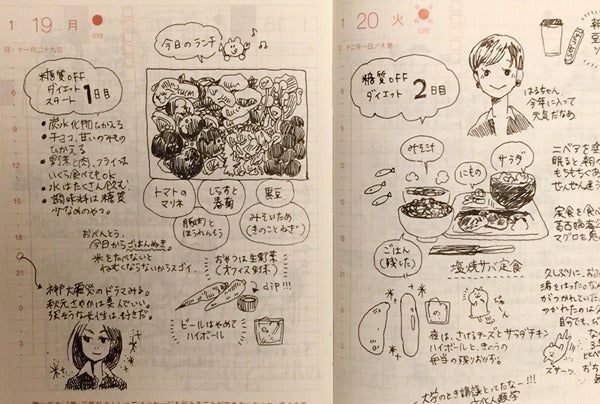 1 19 月
019
旧: 十一月二十九日
今日のランチ
糖質OFF
ダイエット
スタート 1日目
・炭水化物ひかえる
・チョコ、甘いのみもの
ひかえる
・野菜と肉、フライは
いくら食べてもOK
・水はたくさん飲む
・調味料は糖質
少なめのやつ。
トマトの
マリネ
しらすと
春菊
黒豆
豚肉と
ほうれんそう
みそいため
(きのことねぎ)
おべんとう。
今日からごはんぬき。
米をたべないと
ねむくならないからスゴイ。
おやつは生野菜
(オフィス野菜)
dip!!!
神戸大震災のドラマみる。
秋元さやかは美人でいい。
ビールはやめて
ハイボール
1 20 火
020
旧: 十二月一日/大寒
糖質OFF
ダイエット 2日目
はるちゃん、
今年に入って
元気だなぁ。
みそ汁
にもの
サラダ
ごはん
(残した)
塩焼サバ定食
夜は、さけるチーズとサラダチキン
ハイボールと、きのうの
弁当の残りおかず。
ニベアを塗
眠ると朝の
もちもちぐあ
ぜんぜん違う
定食を食
マグロを
久しぶりに、お